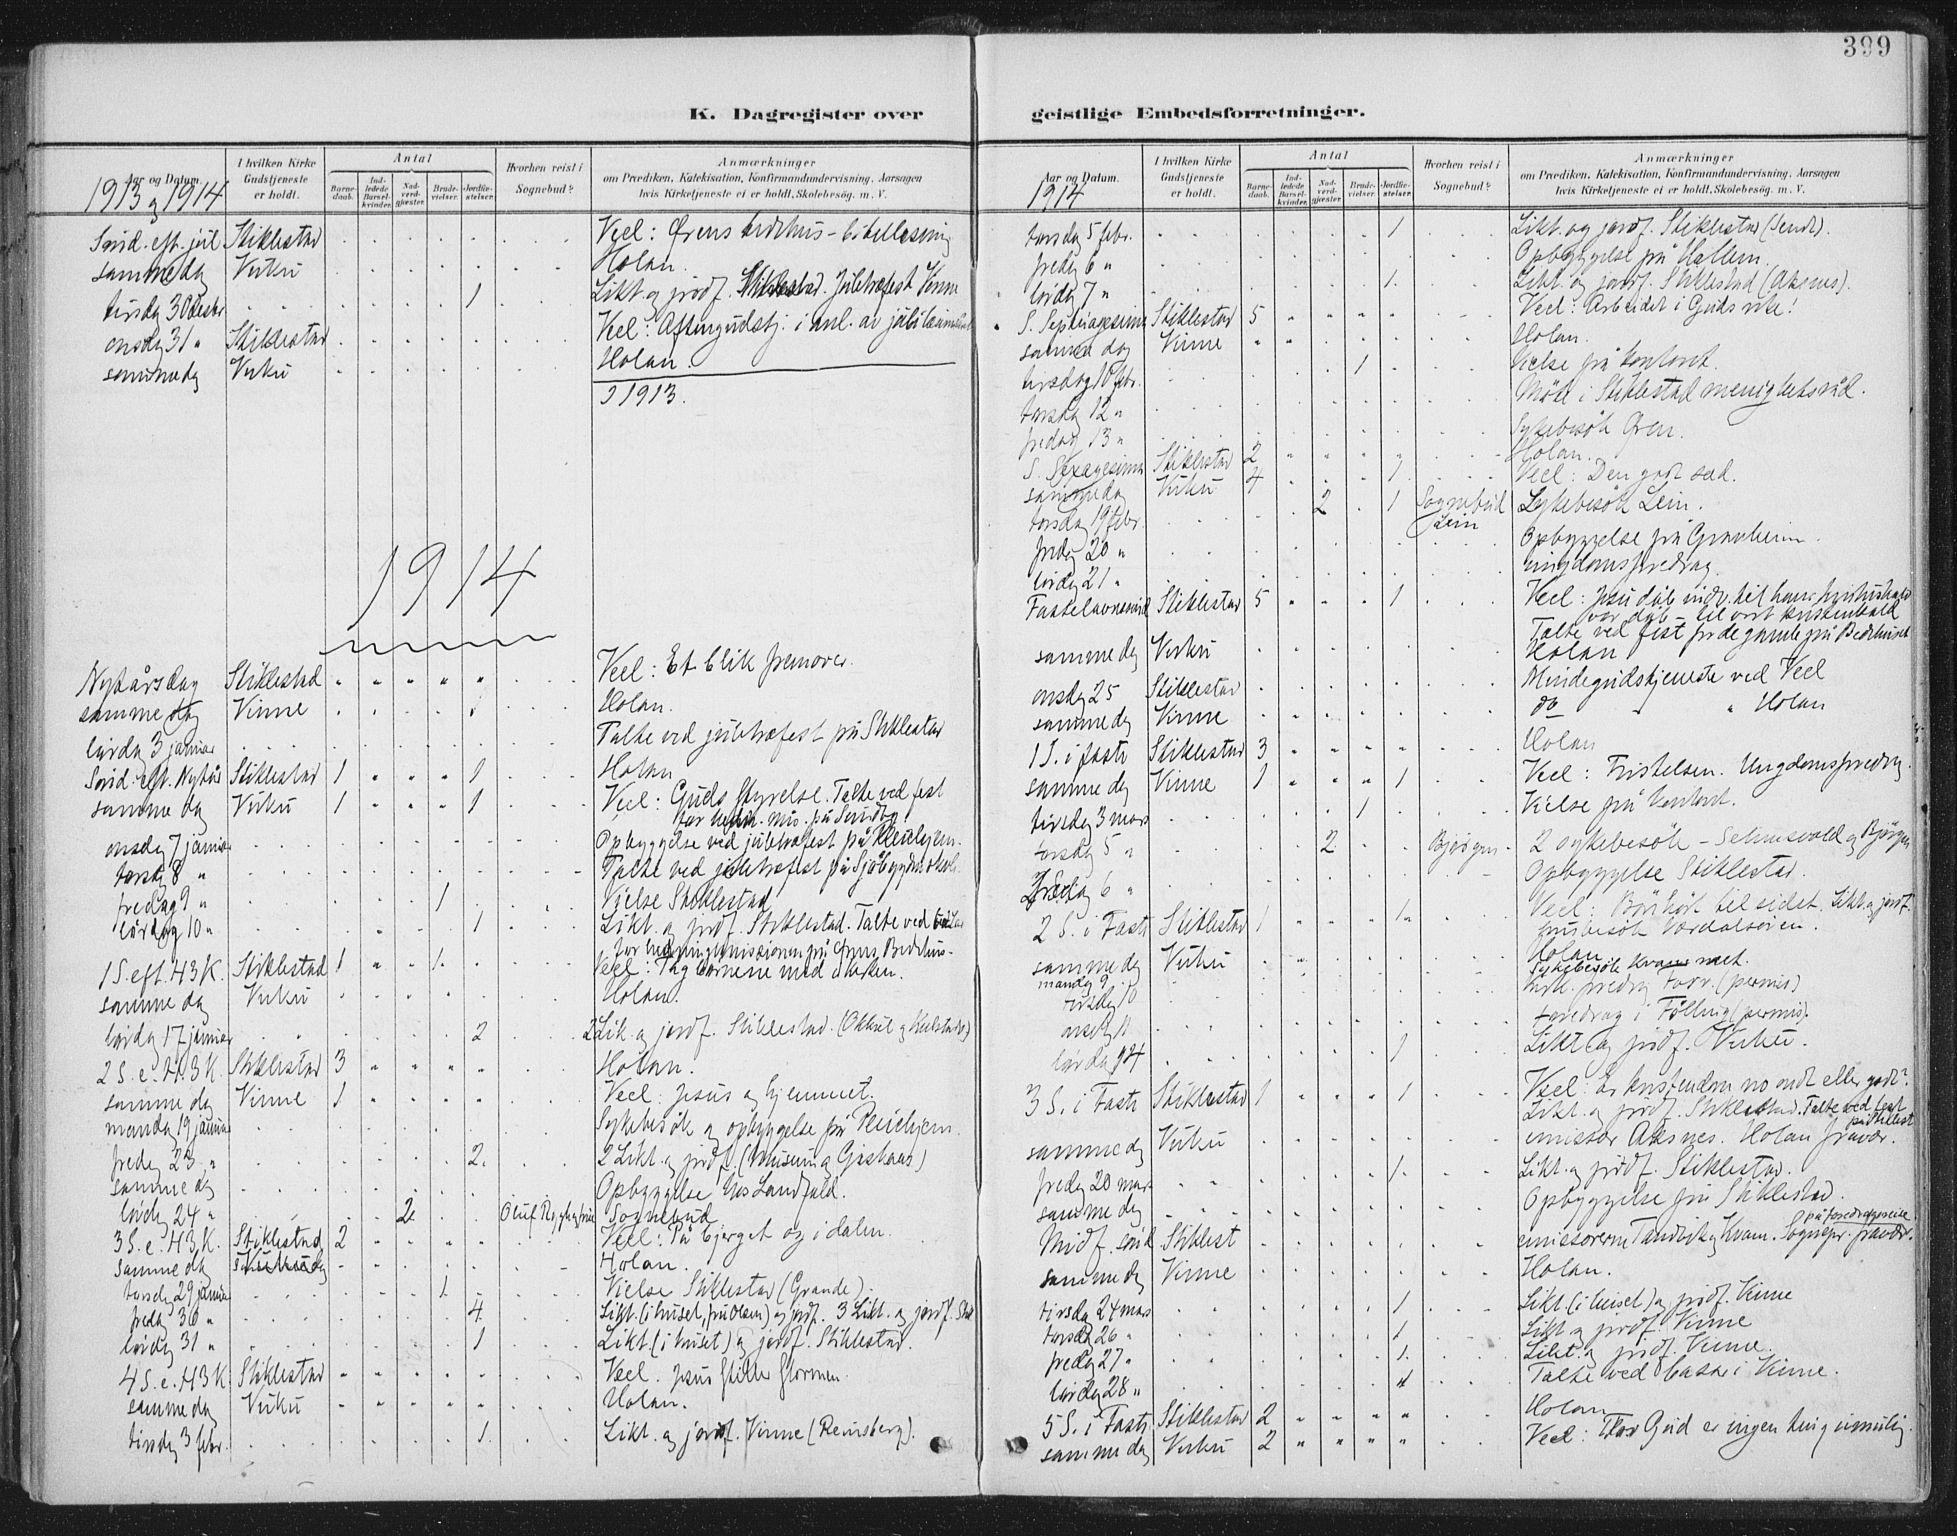 399
K. Dagregister over
geistlige Embedsforretninger.
Aar og Datum.
I hvilken Kirke Gudstjeneste er holdt.
Antal
Barnedaab.
Indledede Barselkvinder.
Nadverdgjæster.
Brudevielser.
Jordfæstelser.
Hvorhen reist i Sognebud?
Anmærkninger
om Prædiken, Katekisation, Konfirmandundervisning, Aarsagen
hvis Kirketjeneste ei er holdt, Skolebesøg. m. V.
1913 og 1914
Sønd. eft. jul Stiklestad Veel: Ørens bedehus - bibellæsning
samme dg Vuku Holan.
tirsdg 30 desbr 1 Likt. og jordf. Juletræfest Vinne
onsdg 31 " Stiklestad Veel: Aftengudstj. i anl. av
samme dg Vuku Holan.
1913.
1914
Nytårsdag Stiklestad Veel: Et blik fremover.
samme dag Vinne Holan.
lørdg 3 januar Talte ved juletræfest på Stiklestad
Sønd. eft. Nytår Stiklestad 1 1 Holan
samme dg Vuku 1 1 Veel: Guds styrelse. Talte ved fest
onsdg 7 januar Opbyggelse ved juletræfest på Pleiehjem.
torsdg 8 " Talte ved juletræfest på
fredag 9 " 1 Vielse Stiklestad
lørdag 10 " 1 Likt. og jordf. Stiklestad. Talte ved
1 S. eft. H3K. Stiklestad 1 1 Veel: Tag børnene med i kirken.
samme dg Vuku Holan.
lørdg 17 januar 2 2 Lik. og jordf. Stiklestad.
2 S. e. H3K. Stiklestad 3 Holan.
samme dg Vinne 1 Veel: Jesus og hjemmet.
mandg 19 januar Sykebesøk og opbyggelse på Pleiehjem.
fredg 23 " 2 2 Likt. og jordf.
samme dg Opbyggelse hos Landfald.
lørdg 24 " 2 Oluf Sognebud
3 S. e. H3K. Stiklestad 2 Veel: På bjerget og i dalen.
samme dg Vuku Holan.
torsdg 29 januar 1 Vielse Stiklestad (Grande).
fredg 30 " 4 Likt. (i huset, fru Olsen) og jordf. 3 Likt. og jordf. Stikl
lørdg 31 " 1 Likt. (i huset) og jordf. Stiklestad.
4 S. e. H3K Stiklestad Veel. Jesus stiller stormen.
samme dg Vuku Holan.
tirsdg 3 febr. 1 Likt. og jordf. Vinne (Reinsberg).
Aar og Datum.
I hvilken Kirke Gudstjeneste er holdt.
Antal
Barnedaab.
Indledede Barselkvinder.
Nadverdgjæster.
Brudevielser.
Jordfæstelser.
Hvorhen reist i Sognebud?
Anmærkninger
om Prædiken, Katekisation, Konfirmandundervisning, Aarsagen
hvis Kirketjeneste ei er holdt, Skolebesøg. m. V.
1914
torsdg 5 febr. 1 Likt. og jordf. Stiklestad
fredg 6 " Opbyggelse på Hallem.
lørdg 7 " 1 Likt. og jordf. Stiklestad (Aksnes).
S. Septuagesima Stiklestad 5 Veel: Arbeidet i Guds rike!
samme dag Vinne Holan.
tirsdag 10 febr. 1 Vielse på kontoret.
torsdg 12 " Møte i Stiklestad menighetsråd.
fredag 13 " Sykebesøk Øren.
S. Sexagesima Stiklestad 2 Holan.
samme dg Vuku 4 1 Veel: Den gode sæd.
torsdg 19 febr. 2 1 Sognebud Lein Sykebesøk Lein.
fredg 20 " Opbyggelse på
lørdg 21 " ungdomsforedrag
Fastelavnssønd Stiklestad 5 1 Veel: Jesu dåb
Talte ved fest for de gamle på Bedehuset
samme dg Vuku Holan
onsdg 25 Stiklestad Mindegudstjeneste ved Veel
samme dg Vinne do " Holan
1 S. i faste Stiklestad 3 Holan
samme dg Vinne 1 1 Veel: Fristelsen. Ungdomsforedrag.
tirsdg 3 mars 1 Vielse på kontoret.
torsdg 5 " 2 Bjørgen 2 sykebesøk - og Bjørgen
fredag 6 " Opbyggelse Stiklestad.
2 S. i Faste Stiklestad 1 1 Veel: Likt. og jordf.
husbesøk Værdalsøren.
samme dg Vuku Holan
mandg 9 Sykebesøk
tirsdg 10 foredrag (permis)
onsdg 11 foredrag i Følling (permis).
lørdg 14 1 Likt. og jordf. Vuku.
3 S. i Faste Stiklestad 1 1 Veel: Er kristendom no ondt eller godt?
Likt. og jordf. Stiklestad. Talte ved fest på Stiklest
samme dg Vuku emissær Aksnes. Holan fravær.
fredg 20 mars 1 Likt. og jordf. Stiklestad.
samme dg Opbyggelse på Stiklestad.
Midf. sønd Stiklest emissærerne Tandvik og Kvam. Sognepr. fravær. på foredragsreise
samme dg Vinne Holan.
tirsdg 24 mars 1 Likt. (i huset) og jordf. Vinne
torsdg 26 " 1 Likt og jordf. Vinne
fredg 27 " 1 Likt. og jordf. Vinne.
lørdg 28 " Talte ved basar i Vinne.
5 S. i Faste Stiklestad 2 Holan
samme dg Vuku 2 Veel: For Gud er ingen ting umulig.